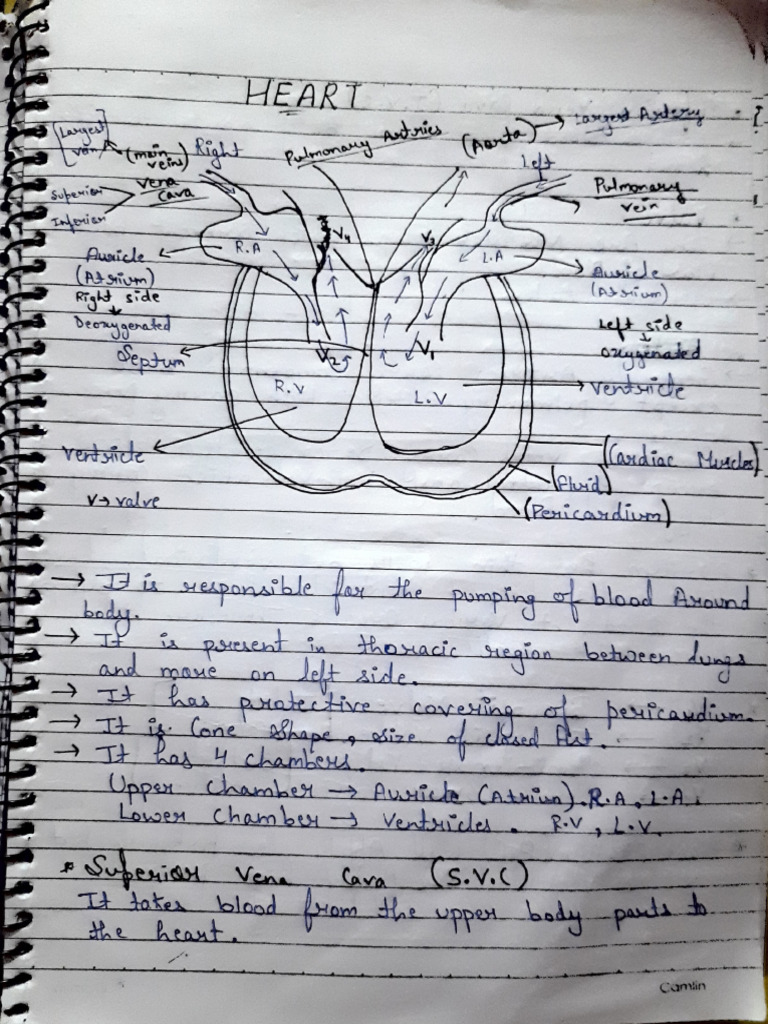 HEART
(Largest vein)
(main veins)
Right
Pulmonary Artries
(Aorta) → Largest Artery
Left
Superior
Inferior
Vena Cava
Pulmonary vein
V4
V3
R.A
L.A
Auricle
(Atrium)
Right side
↓
Deoxygenated
Auricle
(Atrium)
Left side
↓
Oxygenated
Septum
V2
V1
R.V
L.V
Ventricle
Ventricle
(Cardiac Muscles)
(fluid)
(Pericardium)
V → valve
→ It is responsible for the pumping of blood Around
body.
→ It is present in thoracic region between lungs
and more on left side.
→ It has protective covering of pericardium.
→ It is Cone Shape, size of closed fist.
→ It has 4 chambers.
Upper Chamber → Auricle (Atrium). R.A, L.A.
Lower Chamber → Ventricles. R.V, L.V.
* Superior Vena Cava (S.V.C)
It takes blood from the upper body parts to
the heart.
Camlin